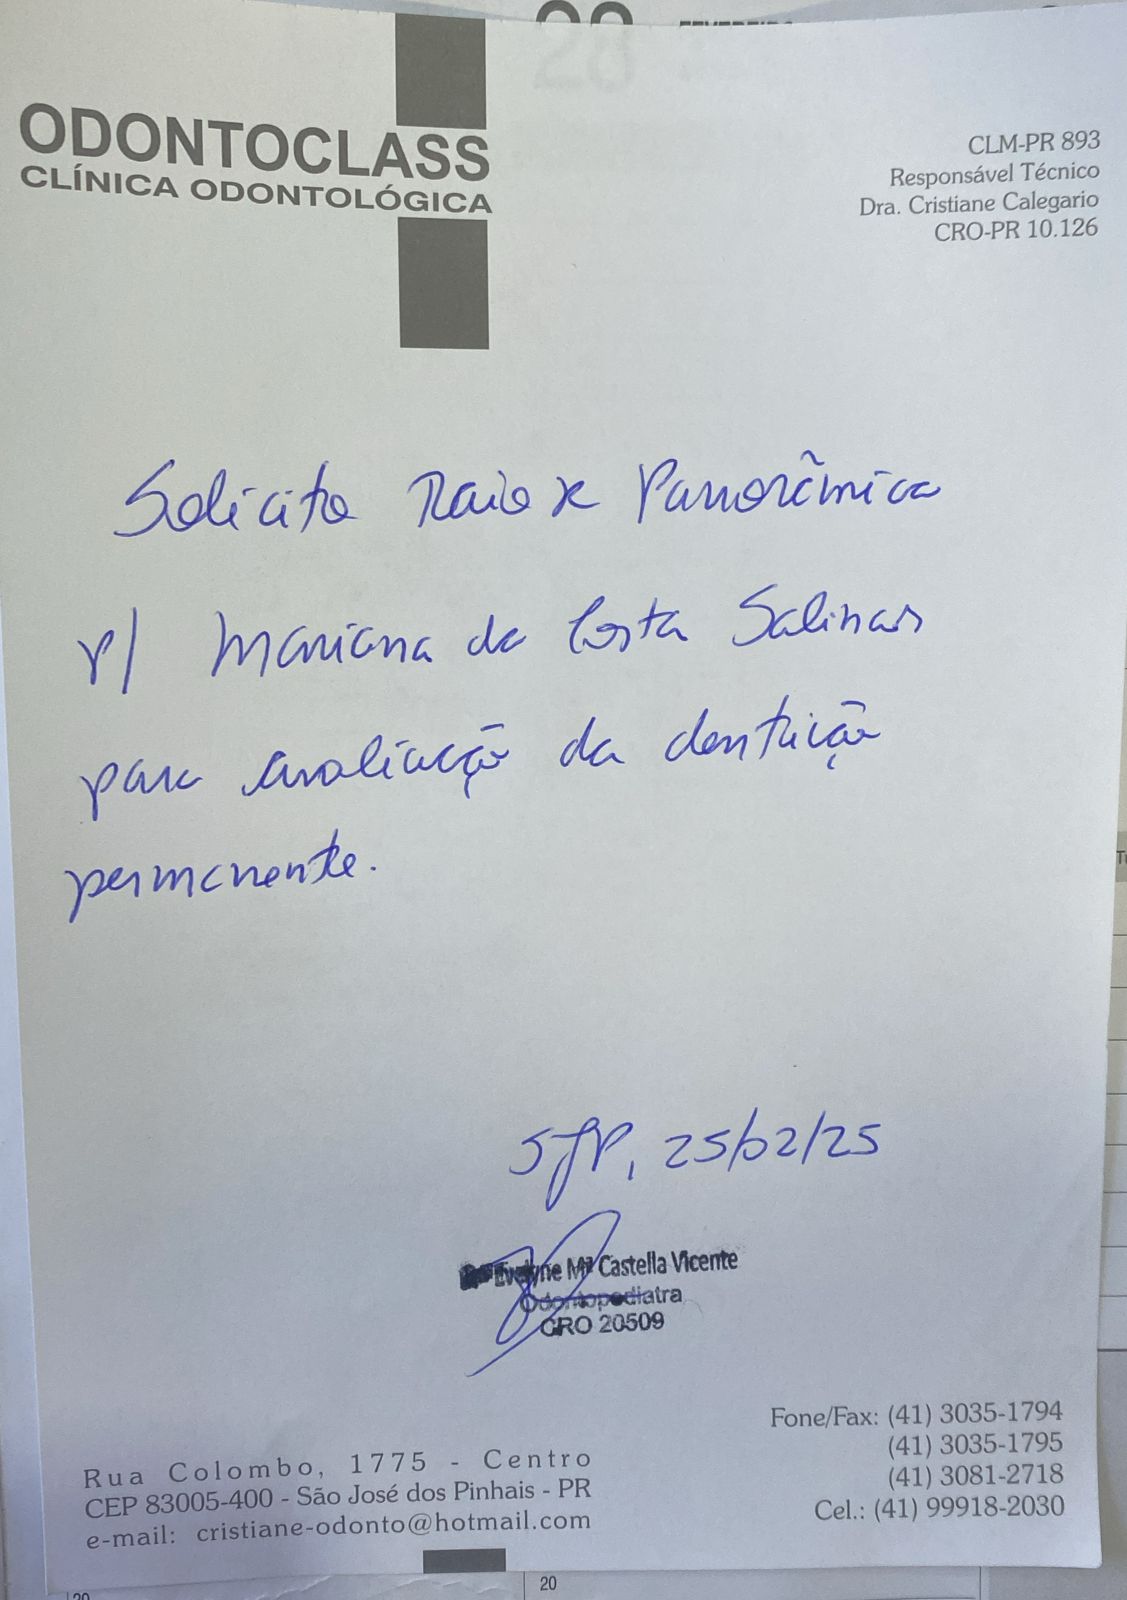 ODONTOCLASS
CLÍNICA ODONTOLÓGICA
CLM-PR 893
Responsável Técnico
Dra. Cristiane Calegario
CRO-PR 10.126
Solicito Raio x Panorâmica
p/ Mariana da Costa Salinas
para avaliação da dentição
permanente.
SJP, 25/02/25
Evelyne Mª Castella Vicente
Odontopediatra
CRO 20509
Rua Colombo, 1775 - Centro
CEP 83005-400 - São José dos Pinhais - PR
e-mail: cristiane-odonto@hotmail.com
Fone/Fax: (41) 3035-1794
(41) 3035-1795
(41) 3081-2718
Cel.: (41) 99918-2030
20